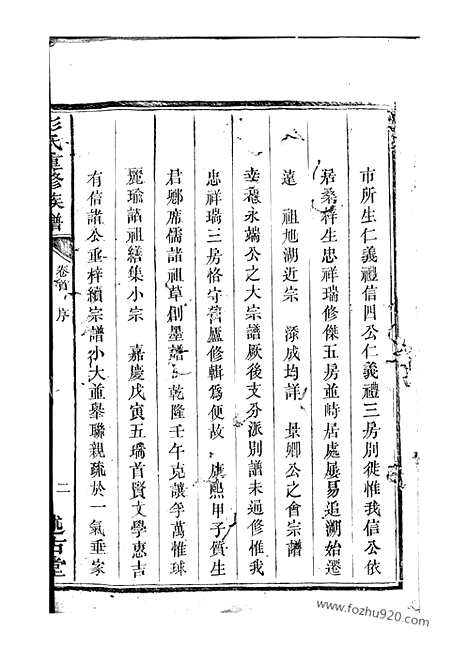 市所生仁義禮信四公仁義禮三房別徙惟我信公依
居桑梓生忠祥瑞修傑五房並峙居處屢易追溯始遷
遠 祖旭湖近宗 添成均詳 景卿公之會宗譜
永端公之大宗譜厥後支分派別譜未過修惟我
忠祥瑞三房恪守舊廬修輯為便故 康熙甲子質生
君鄉席儒諸祖草創墨譜 乾隆壬午克讓孚萬惟球
麗瑜諸祖繕集小宗 嘉慶戊寅五璚首賢文學惠吉
有信諸公重梓續宗譜小大並舉聯親疏於一氣垂家
彭氏重修族譜
卷首 序
二
述古堂
www.fozhu920.com